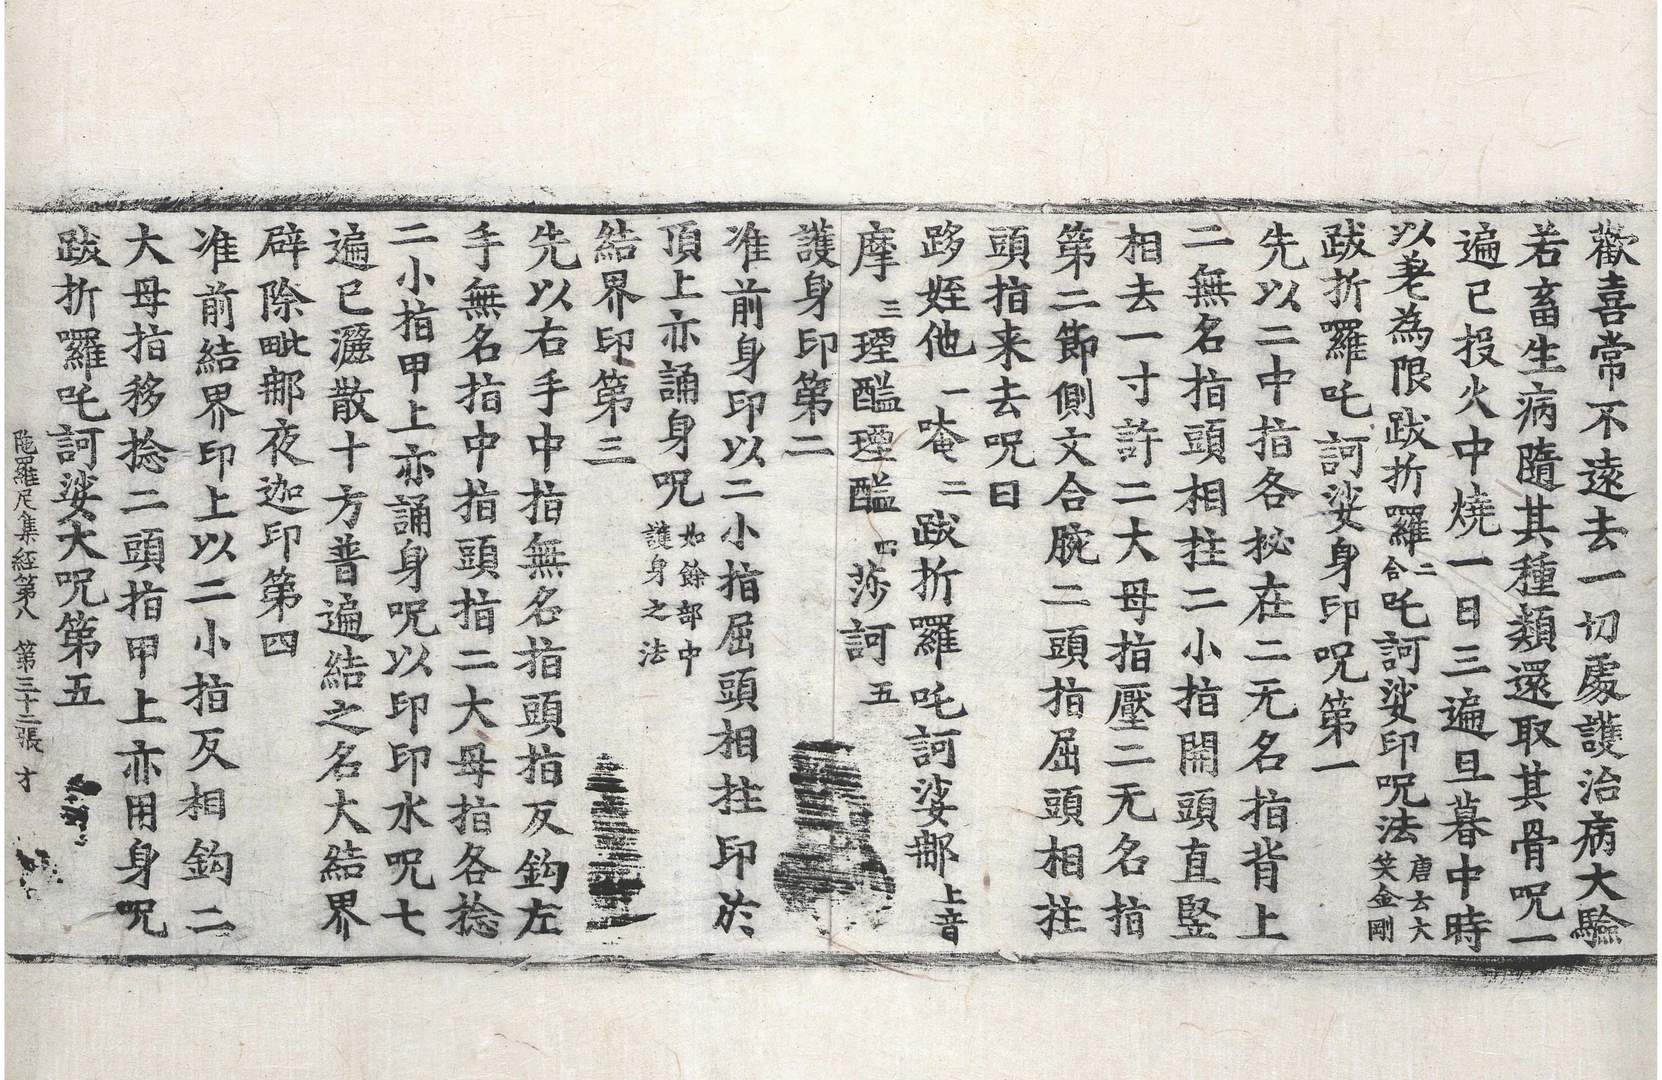 歡喜常不遠去一切處護治病大驗
若畜生病隨其種類還取其骨呪一
遍已投火中燒一日三遍旦暮中時
以差為限跋折羅二合吒訶娑印呪法唐云大笑金剛
跋折囉吒訶娑身印呪第一
先以二中指各拟在二无名指背上
二無名指頭相拄二小指開頭直竪
相去一寸許二大母指壓二无名指
第二節側文合腕二頭指屈頭相拄
頭指来去呪曰
跢姪他一唵二跋折囉吒訶娑那上音
摩三瑿醯瑿醯四莎訶五
護身印第二
准前身印以二小指屈頭相拄印於
頂上亦誦身呪如餘部中護身之法
結界印第三
先以右手中指無名指頭指反鉤左
手無名指中指頭指二大母指各捻
二小指甲上亦誦身呪以印印水呪七
遍已灑散十方普遍結之名大結界
辟除毗那夜迦印第四
准前結界印上以二小指反相鉤二
大母指移捻二頭指甲上亦用身呪
跋折囉吒訶娑大呪第五
陁羅尼集經第八 第三十二張 才